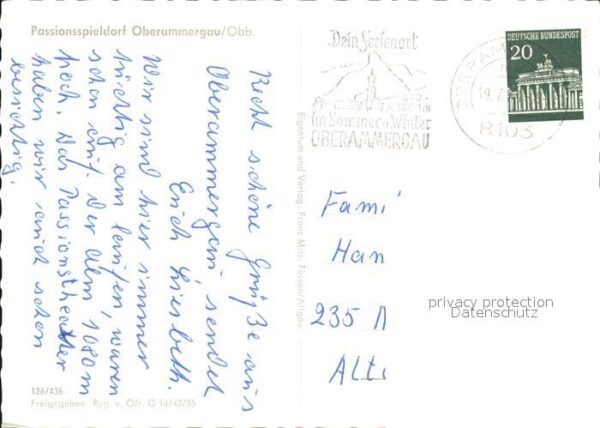 Passionsspieldorf Oberammergau/Obb.
Recht schöne Grüße aus
Oberammergau sendet
Erich Liesbeth.
Wir sind hier immer
tüchtig am laufen, waren
schon auf der Alm 1080 m
hoch. Das Passionstheater
haben wir auch schon
besichtigt.
126/436
Freigegeben: Reg. v. Obb. G 16/43/35
Eigentum und Verlag: Franz Milz, Füssen/Allgäu
Dein Ferienort
im Sommer u. Winter
OBERAMMERGAU
OBERAMM
19.
8103
DEUTSCHE BUNDESPOST
20
Fami
Han
235 N
Alt
privacy protection
Datenschutz